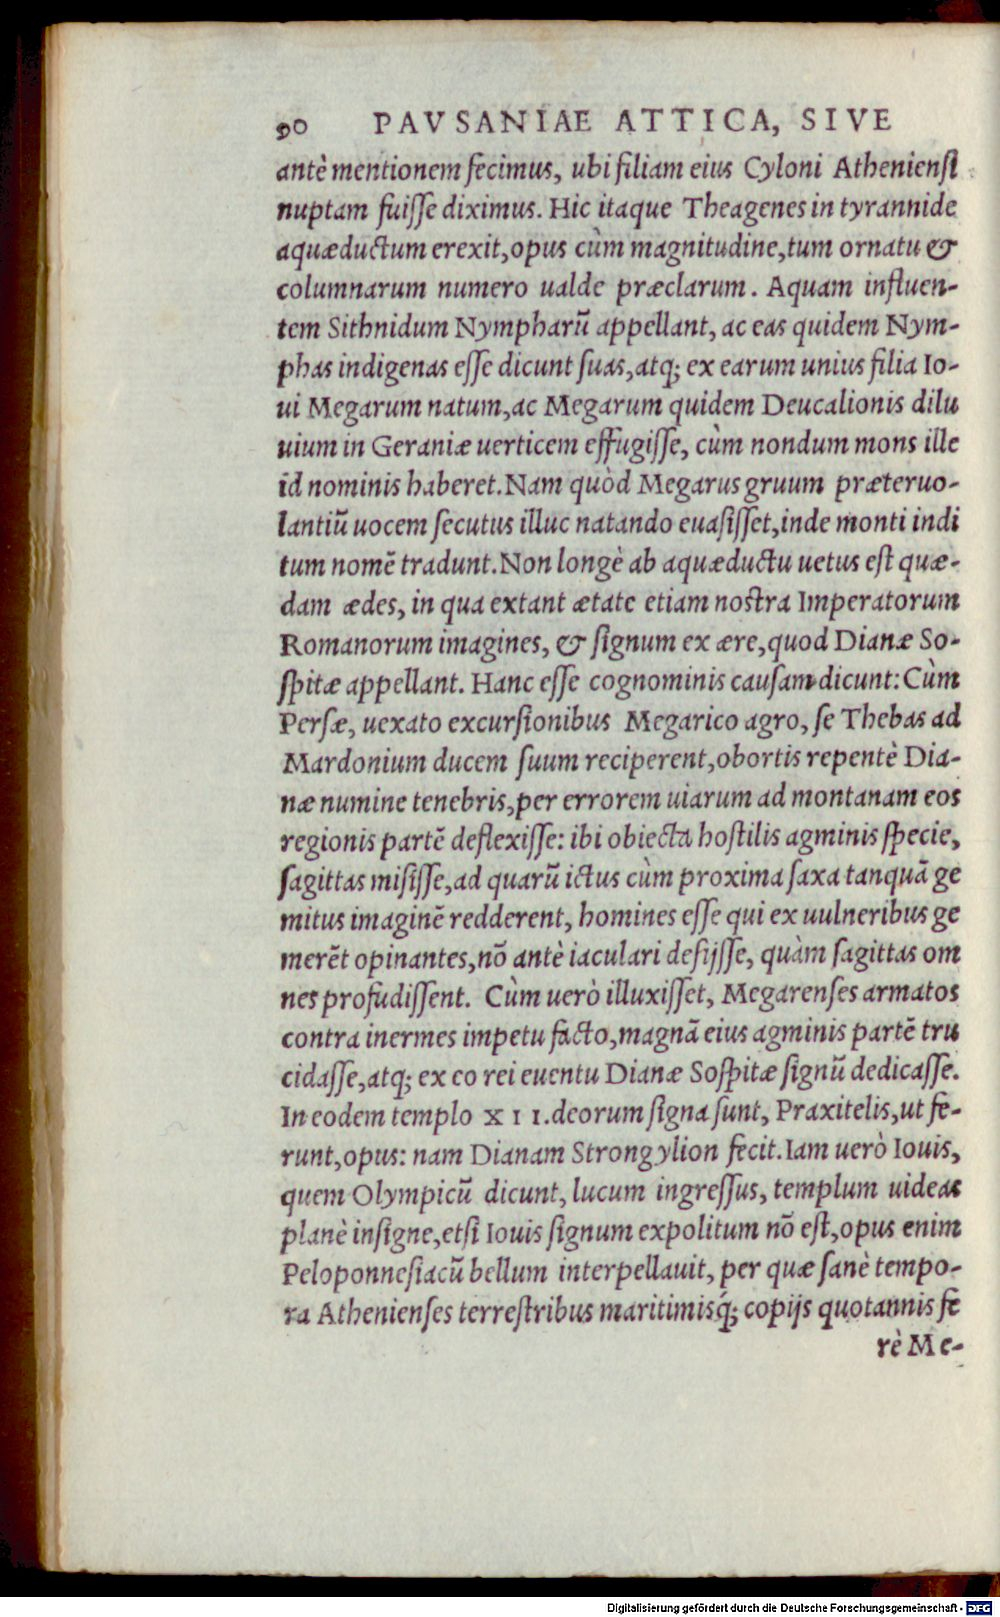 90 PAVSANIAE ATTICA, SIVE
antè mentionem fecimus, ubi filiam eius Cyloni Atheniensi
nuptam fuisse diximus. Hic itaque Theagenes in tyrannide
aquæductum erexit, opus cùm magnitudine, tum ornatu &
columnarum numero ualde præclarum. Aquam influen-
tem Sithnidum Nympharũ appellant, ac eas quidem Nym-
phas indigenas esse dicunt suas, atq; ex earum unius filia Io-
ui Megarum natum, ac Megarum quidem Deucalionis dilu
uium in Geraniæ uerticem effugisse, cùm nondum mons ille
id nominis haberet. Nam quòd Megarus gruum præteruo-
lantiũ uocem secutus illuc natando euasisset, inde monti indi
tum nomẽ tradunt. Non longè ab aquæductu uetus est quæ-
dam ædes, in qua extant ætate etiam nostra Imperatorum
Romanorum imagines, & signum ex ære, quod Dianæ So-
spitæ appellant. Hanc esse cognominis causam dicunt: Cùm
Persæ, uexato excursionibus Megarico agro, se Thebas ad
Mardonium ducem suum reciperent, obortis repentè Dia-
næ numine tenebris, per errorem uiarum ad montanam eos
regionis partẽ deflexisse: ibi obiecta hostilis agminis specie,
sagittas misisse, ad quarũ ictus cùm proxima saxa tanquã ge
mitus imaginẽ redderent, homines esse qui ex uulneribus ge
merẽt opinantes, nõ antè iaculari desijsse, quàm sagittas om
nes profudissent. Cùm uerò illuxisset, Megarenses armatos
contra inermes impetu facto, magnã eius agminis partẽ tru
cidasse, atq; ex eo rei euentu Dianæ Sospitæ signũ dedicasse.
In eodem templo XII. deorum signa sunt, Praxitelis, ut fe-
runt, opus: nam Dianam Strongylion fecit. Iam uerò Iouis,
quem Olympicũ dicunt, lucum ingressus, templum uideas
planè insigne, etsi Iouis signum expolitum nõ est, opus enim
Peloponnesiacũ bellum interpellauit, per quæ sanè tempo-
ra Athenienses terrestribus maritimisq́; copijs quotannis fe
rè Me-
Digitalisierung gefördert durch die Deutsche Forschungsgemeinschaft - DFG